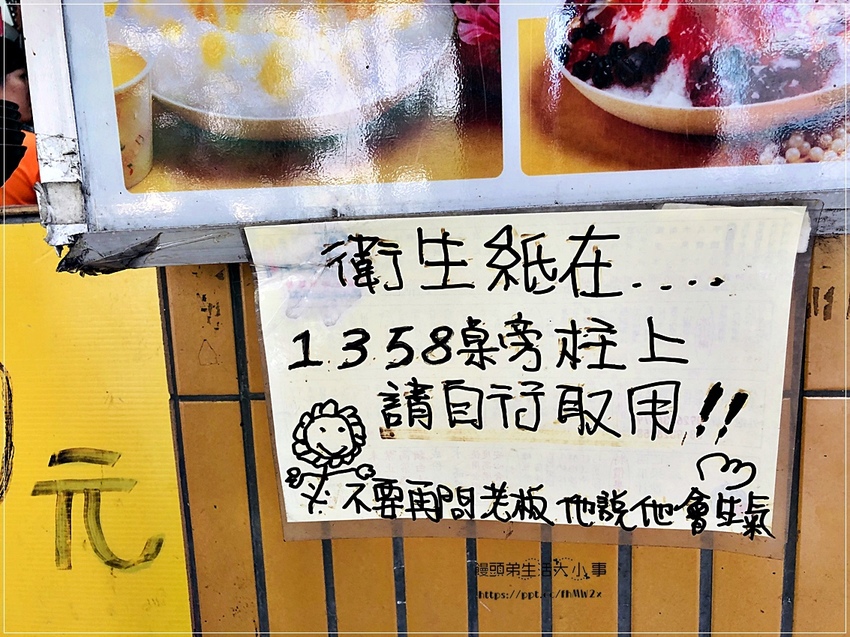 衛生紙在....
1358桌旁柱上
請自行取用!!
不要再問老板他說他會生氣
元
饅頭弟生活大小事
https://ppt.cc/fhMW2x